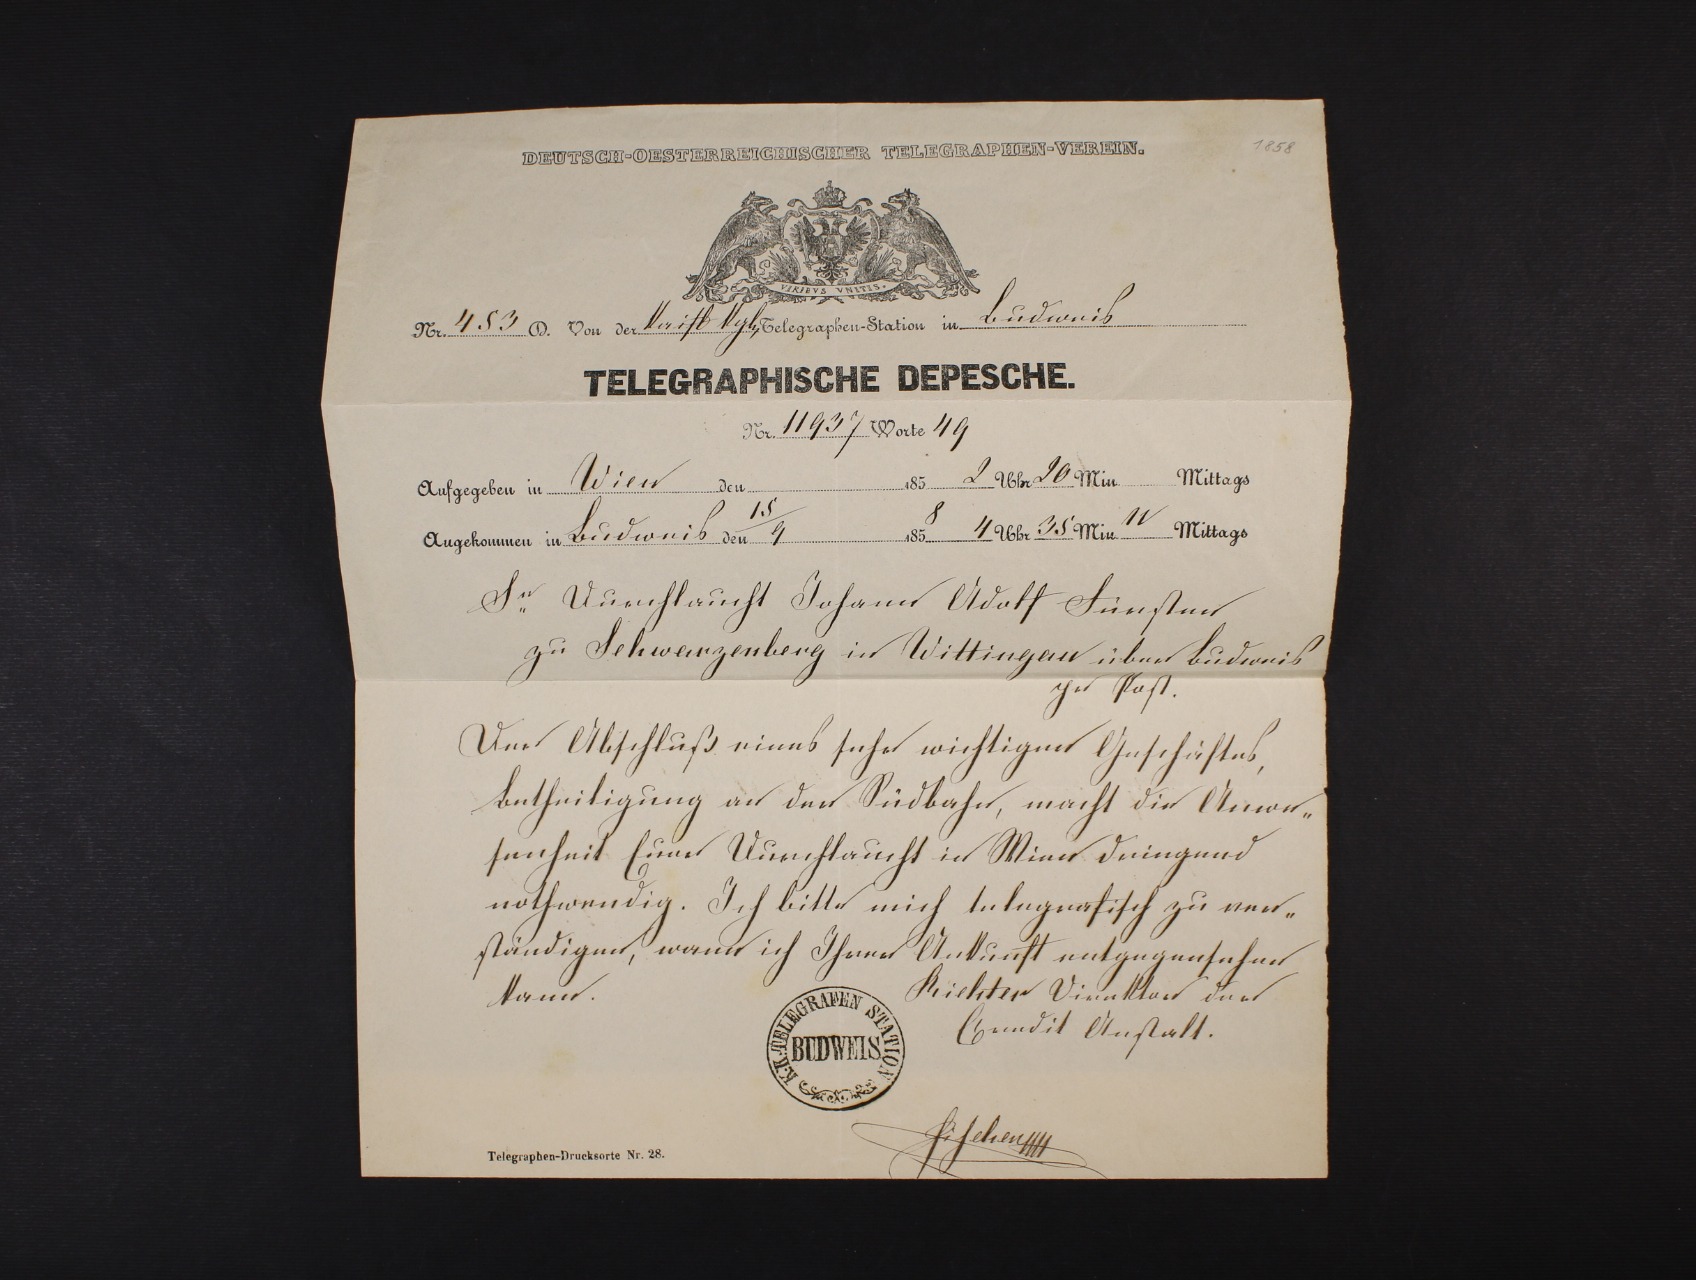 DEUTSCH-OESTERREICHISCHER TELEGRAPHEN-VEREIN.
1858
VIRIBVS VNITIS.
Nr. 453 D. Von der Kais Kgl Telegraphen-Station in Budweis
TELEGRAPHISCHE DEPESCHE.
Nr. 11937 Worte 49
Aufgegeben in Wien den 185 2 Uhr 20 Min Mittags
Angekommen in Budweis den 15/9 1858 4 Uhr 35 Min N Mittags
Sr Durchlaucht Johann Adolf Fürsten
zu Schwarzenberg in Wittingau über Budweis
per Post.
Der Abschluß eines sehr wichtigen Geschäftes,
Betheiligung an der Südbahn, macht die Anwe„
senheit Eurer Durchlaucht in Wien dringend
nothwendig. Ich bitte mich telegrafisch zu ver„
ständigen, wann ich Ihrer Ankunft entgegensehen
kann.
Richter Direktor der
Credit Anstalt.
K.K. TELEGRAFEN STATION
BUDWEIS
Telegraphen-Drucksorte Nr. 28.